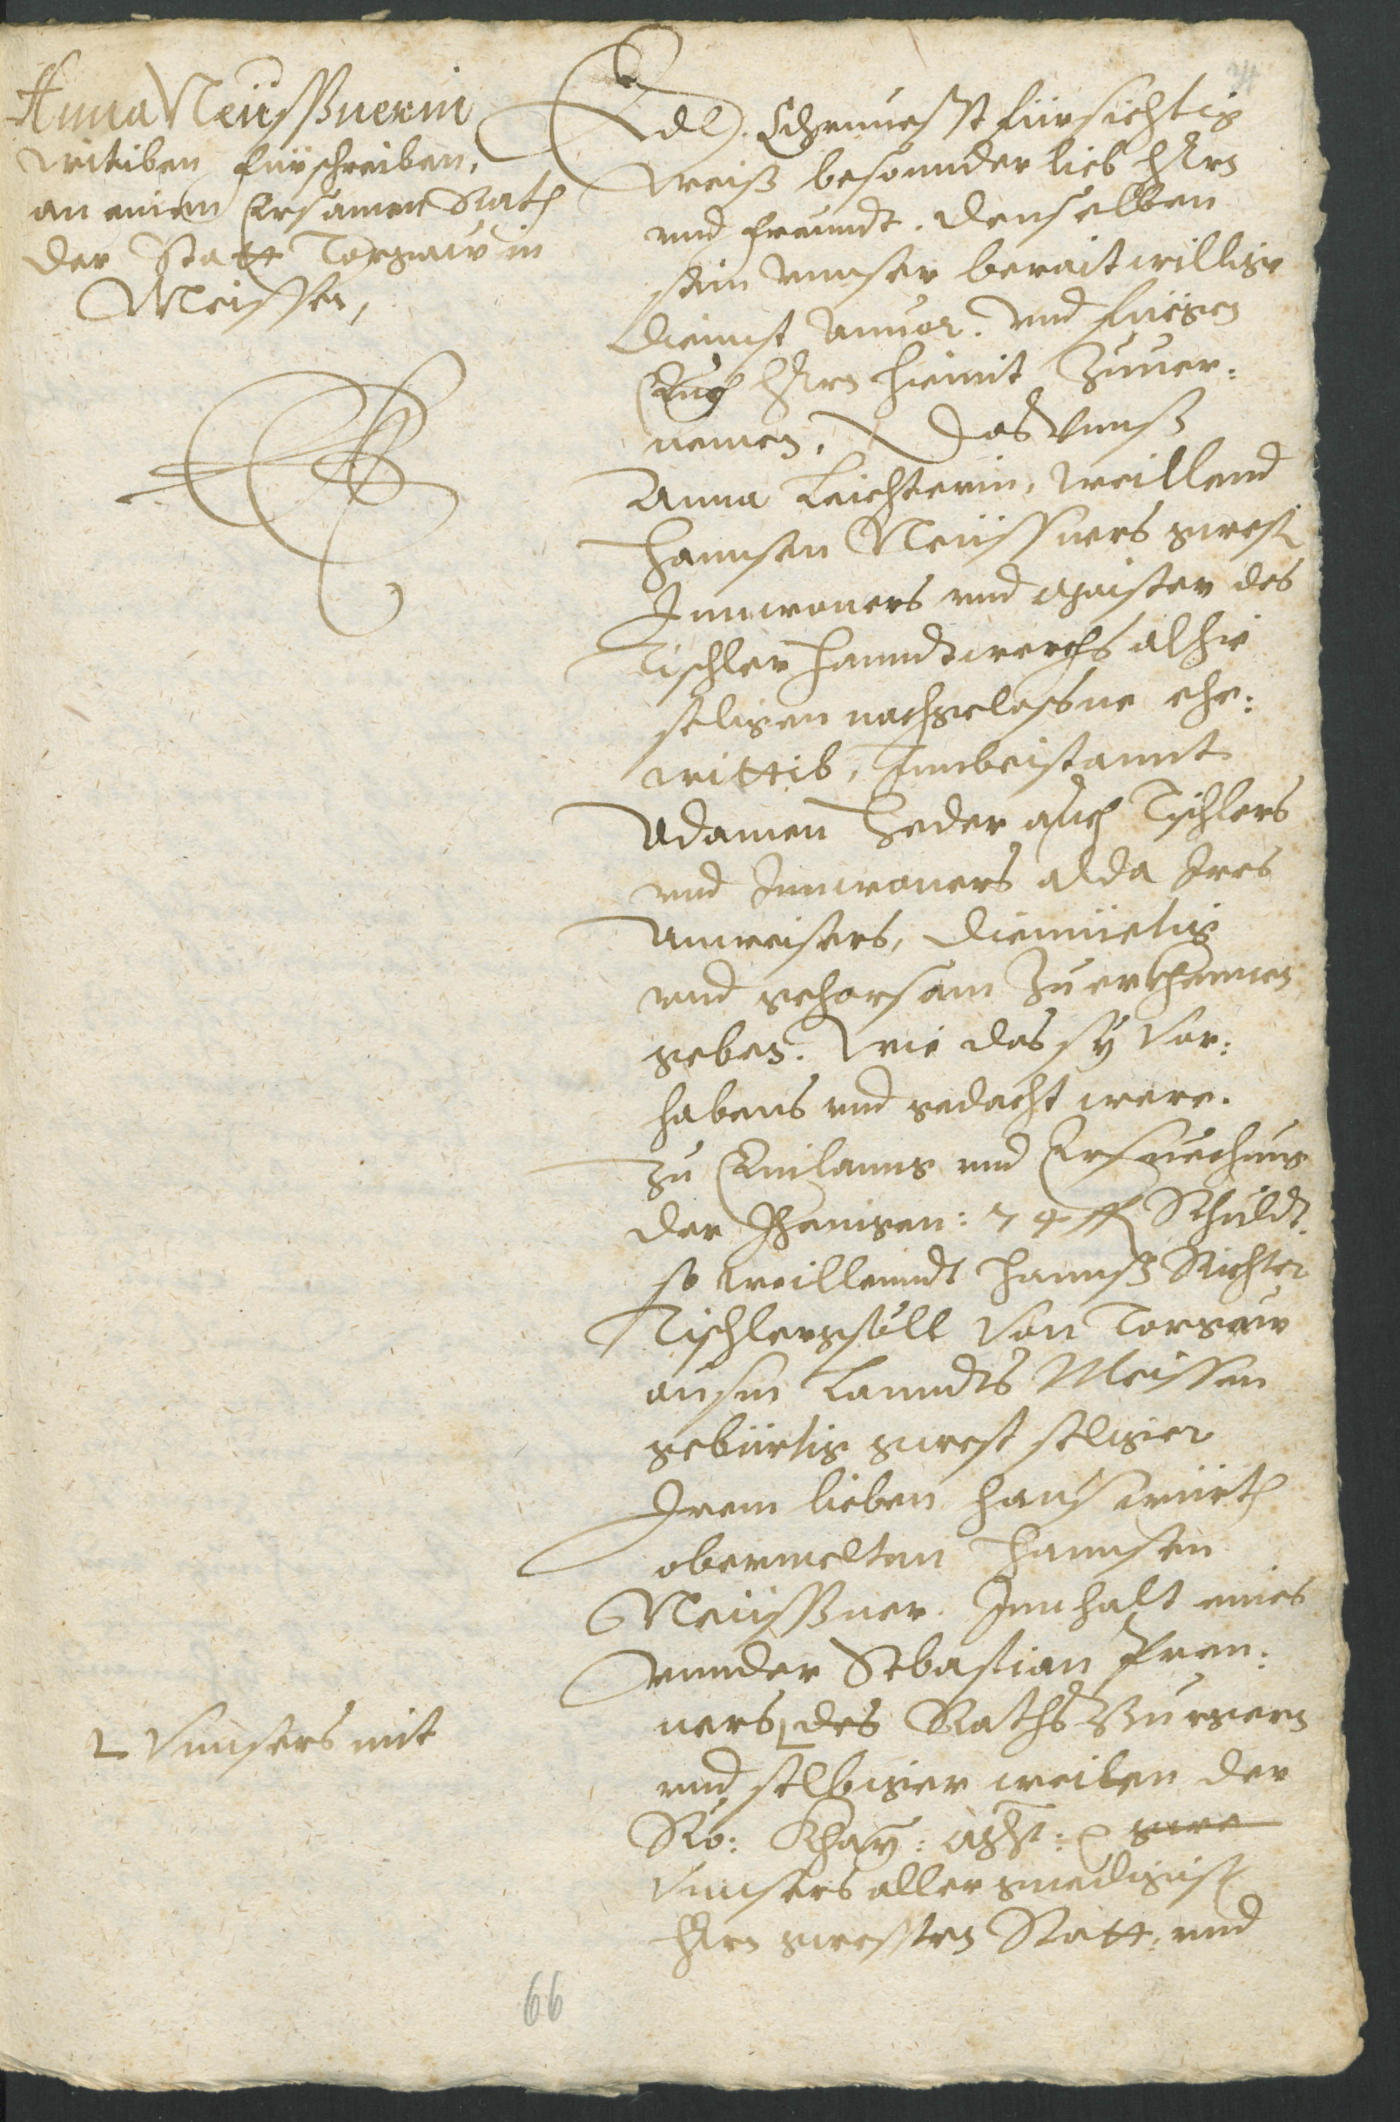 Anna Neüsßnerin
witiben fürschreiben,
an einen Ersamen Rath
der Statt Torgaw in
Meissen,
Edl. Ehrnuesst fürsichtig
weiß besonnder lieb Herrn
vnd freundt. denselben
sein vnnser beraitwillige
diennst Anuor. vnd fuegen
Euch Herrn hiemit Zuuer:
nemen. Das vnnß
Anna Leichterin, weillend
Hannsen Neüssners gwest
Innwoners vnd Maister des
Tischler Hanndtwerchs alhie
seligen nachgelassne ehe:
wittib, Inn beistanndt
Adamen Heder auch Tischlers
vnd Innwoners alda Ires
Anweisers, diemüetig
vnd gehorsam Zuerkhennen
geben. Wie das sÿ vor:
habens vnd gedacht were.
Zu Einlanng vnd Ersuechung
der Jhenigen: 74 fl Schuldt.
so weillenndt Hannß Richter
Tischlergsöll von Torgaw
ausm Lanndts Meissen
gebürtig gwest seliger
Irem lieben Hauswürth
obermelten Hannsen
Neüssßner. Innhalt eines
vnnder Sebastian Pren:
ners des Raths Burgern
⌊ vnnsers mit
vnd selbiger weilen der
Rö: Khay: Mht: ꝛ gwe
vnnsers aller gnedigist
Herrn gwessten Statt, vnd
66